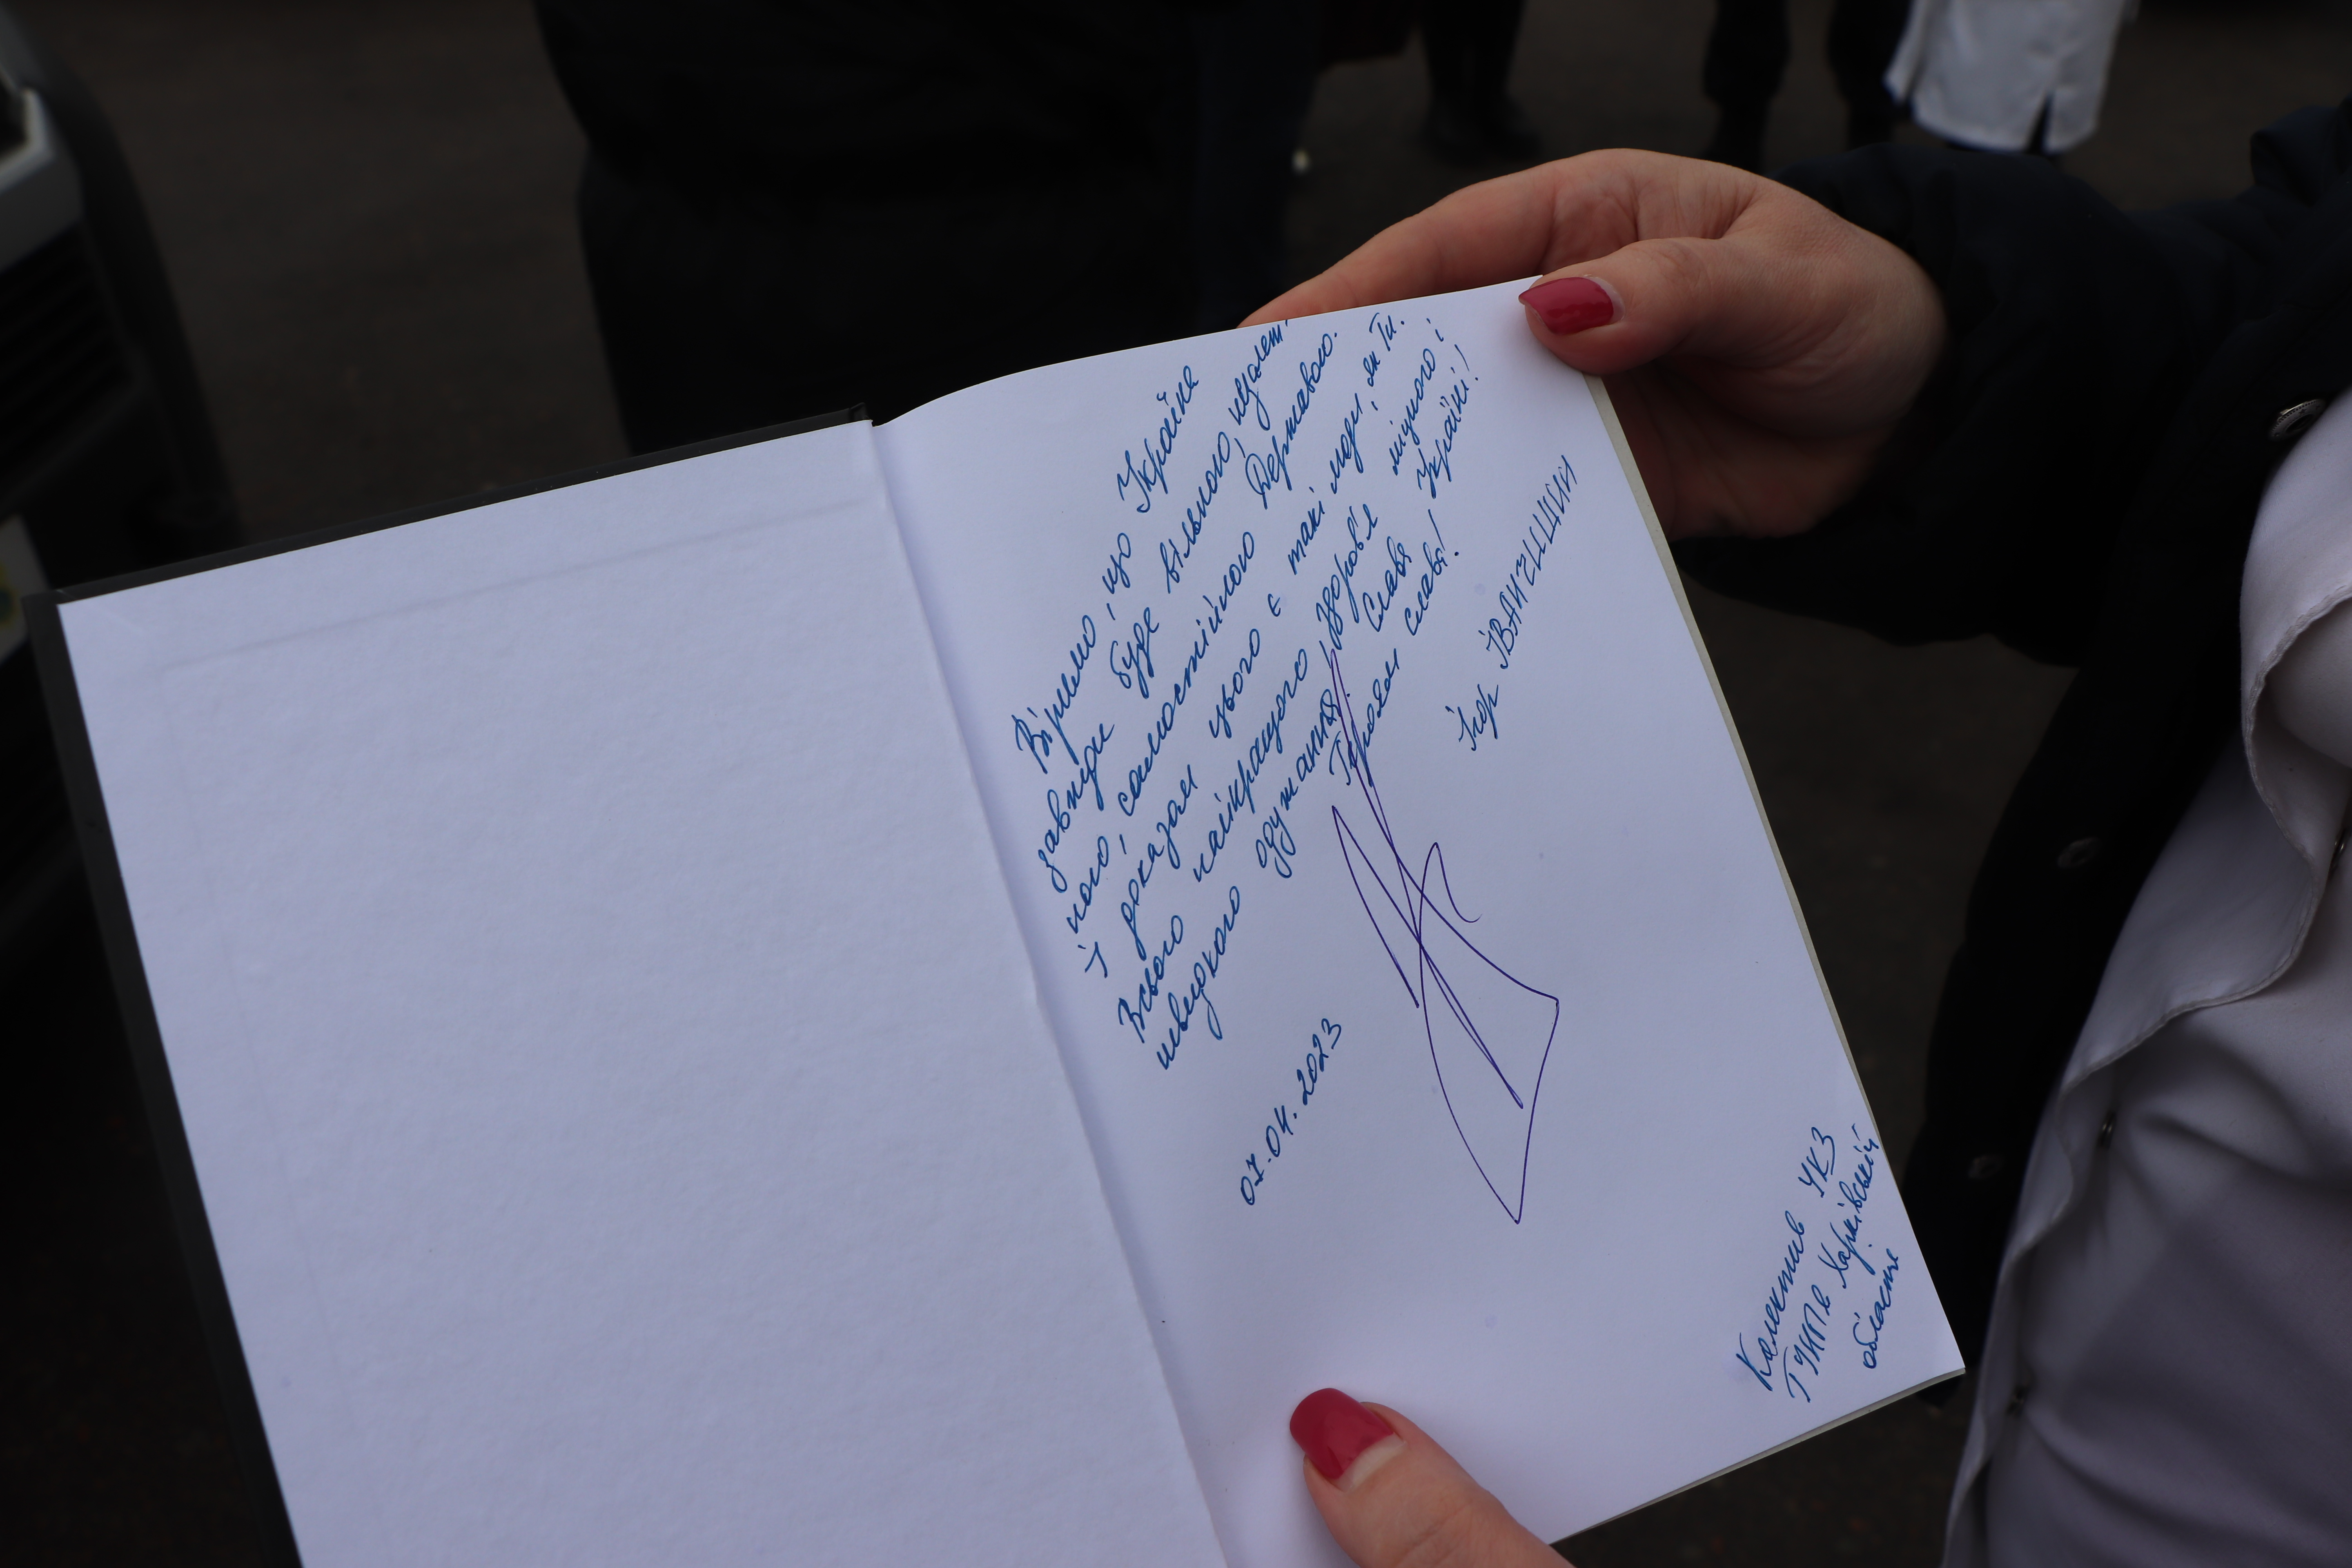 Віримо, що Україна
завжди буде вільною, незалеж-
ною, самостійною Державою.
І доказом цього є такі люди, як Ти.
Всього найкращого, здоров'я міцного і
швидкого одужання. Слава Україні!
Героям слава!
Ігор ІВАНЧИШИН
07.04.2023
Колектив УКЗ
ГУНП в Харківській
області